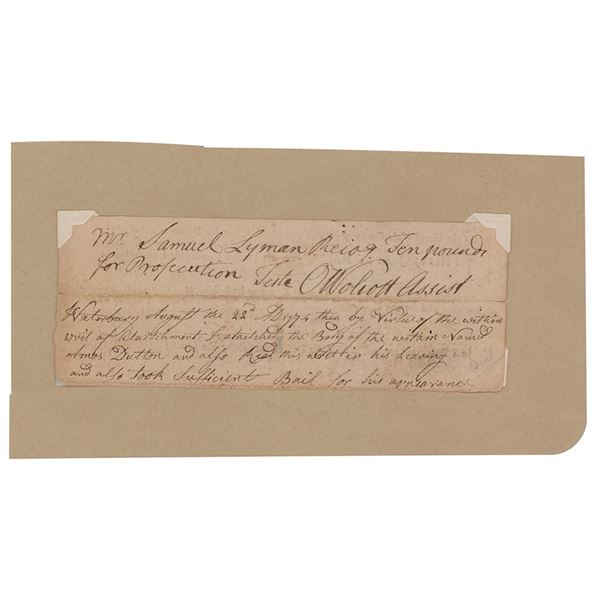 Mr. Samuel Lyman Recog Ten pounds
for Prosecution Teste OWolcott Assist
Waterbury August the 22d AD 1774 then by Virtue of the within
writ of Attachment I attached the Body of the within Named
Amos Dutton and also Read this writ in his hearing
and also took Sufficient Bail for his appearance